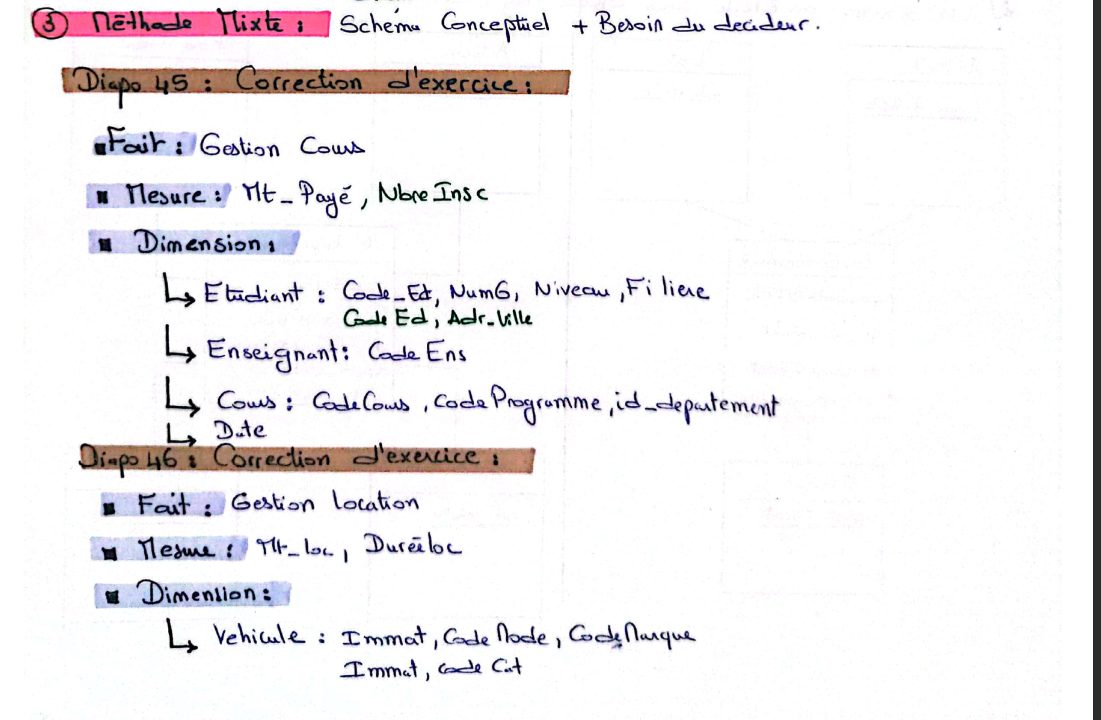 ③ Méthode Mixte : Schéma Conceptuel + Besoin du decideur.
Diapo 45 : Correction d'exercice :
Fait : Gestion Cours
Mesure : Mt_Payé, Nbre Insc
Dimension :
↳ Etudiant : Code_Et, NumG, Niveau, Filiere
Code Ed, Adr-Ville
↳ Enseignant : Code Ens
↳ Cours : Code Cours, Code Programme, id_departement
↳ Date
Diapo 46 : Correction d'exercice :
Fait : Gestion location
Mesure : Mt_loc, Duréeloc
Dimention :
↳ Vehicule : Immat, Code Mode, Code Marque
Immat, code Cat